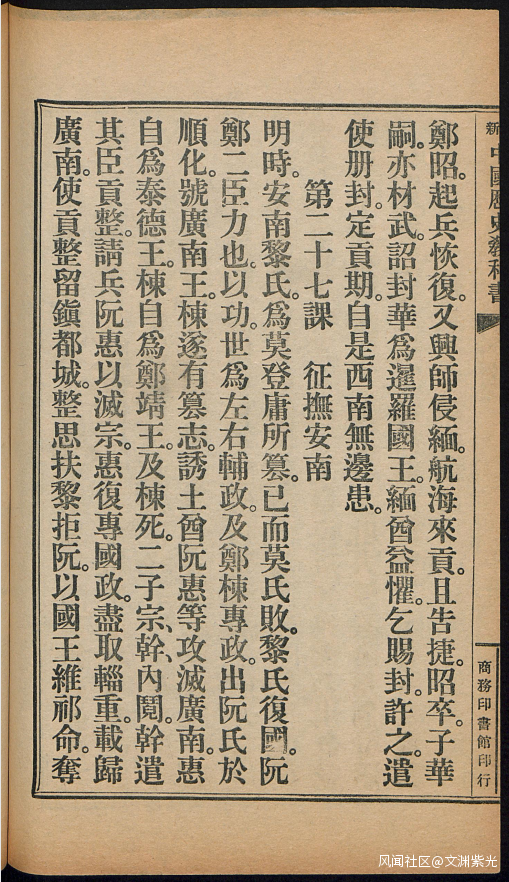 新中國歷史教科書
商務印書館印行
鄭昭起兵恢復。又興師侵緬。航海來貢。且告捷。昭卒。子華
嗣。亦材武。詔封華爲暹羅國王。緬酋益懼。乞賜封。許之。遣
使册封。定貢期。自是西南無邊患。
第二十七課 征撫安南
明時。安南黎氏。爲莫登庸所篡。已而莫氏敗。黎氏復國。阮
鄭二臣力也。以功世爲左右輔政。及鄭棟專政。出阮氏於
順化。號廣南王。棟遂有篡志。誘土酋阮惠等攻滅廣南。惠
自爲泰德王。棟自爲鄭靖王。及棟死。二子宗、幹、內鬩。幹遣
其臣貢整。請兵阮惠以滅宗。惠復專國政。盡取輜重。載歸
廣南。使貢整留鎭都城。整思扶黎拒阮。以國王維祁命。奪
风闻社区@文洲紫光